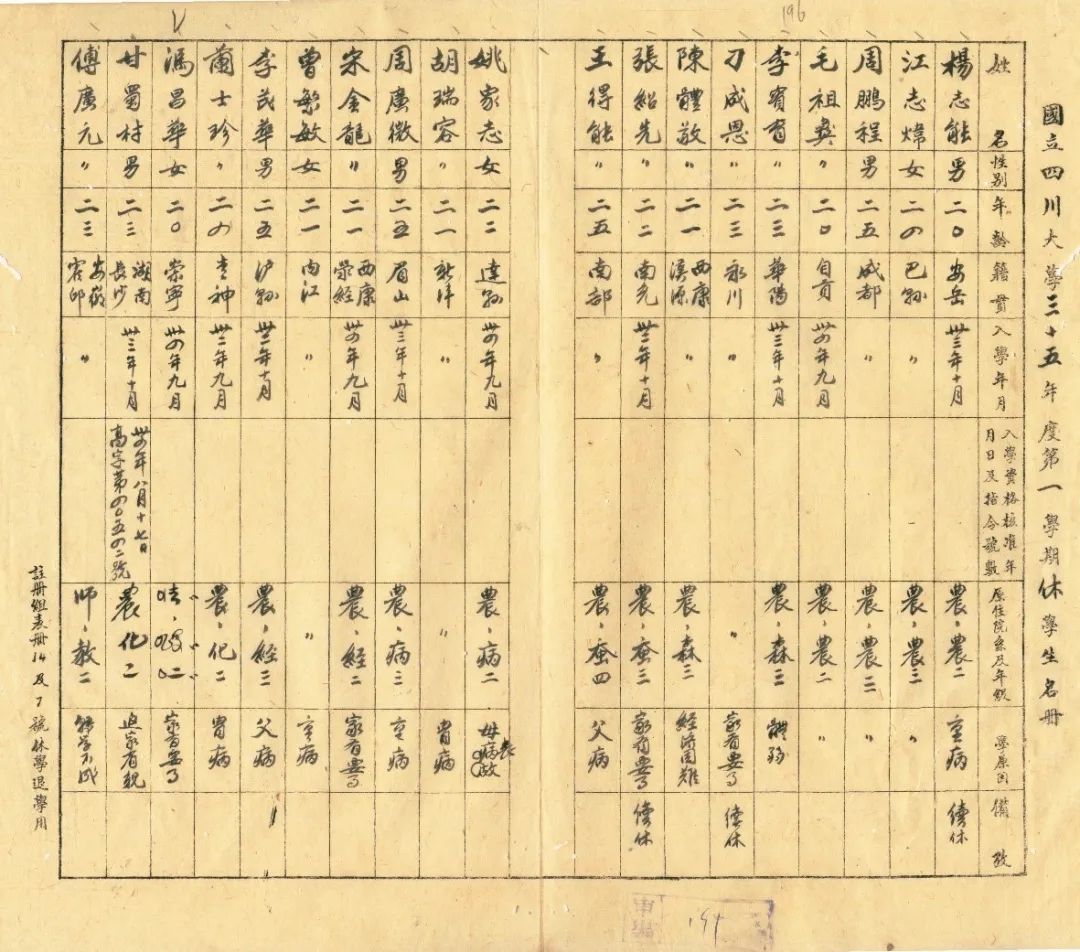 國立四川大學三十五年度第一學期休學生名冊
姓名 性別 年齡 籍貫 入學年月 入學資格核准年月日及指令號數 原住院系及年級 學原因 備攷
楊志能 男 二〇 安岳 卅三年十月 農,農二 重病 續休
江志煒 女 二四 巴縣 〃 農,農三 〃
周鵬程 男 二五 成都 〃 農,農三 〃
毛祖彝 〃 二〇 自貢 卅四年九月 農,農二 〃
李賓育 〃 二三 華陽 卅三年十月 農,森三 體弱
刁成恩 〃 二三 永川 〃 家有要事 續休
陳體敬 〃 二一 西康漢源 〃 農,森三 經濟困難
張紹先 〃 二二 南充 卅三年十月 農,蚕三 家有要事 續休
王得能 〃 二五 南部 〃 農,蚕四 父病
姚家志 女 二二 達縣 卅四年九月 農,病二 母病故
胡瑞容 〃 二一 新津 〃 胃病
周廣微 男 二五 眉山 卅三年十月 農,病三 重病
宋金龍 〃 二一 西康滎經 卅四年九月 農,經二 家有要事
曾繁敏 女 二一 內江 〃 〃 重病
李茂華 男 二五 瀘縣 卅二年十月 農,經三 父病
蘭士珍 〃 二四 卅三年九月 農,化二 胃病
馮昌華 女 二〇 崇寧 卅四年九月 二 家有要事
甘蜀村 男 二三 湖南長沙 卅三年十月 卅四年八月十七日高字第四〇五四二號 農化二
傅廣元 〃 二三 〃 師,教二
註冊組表冊14及7號休學退學用
196
194